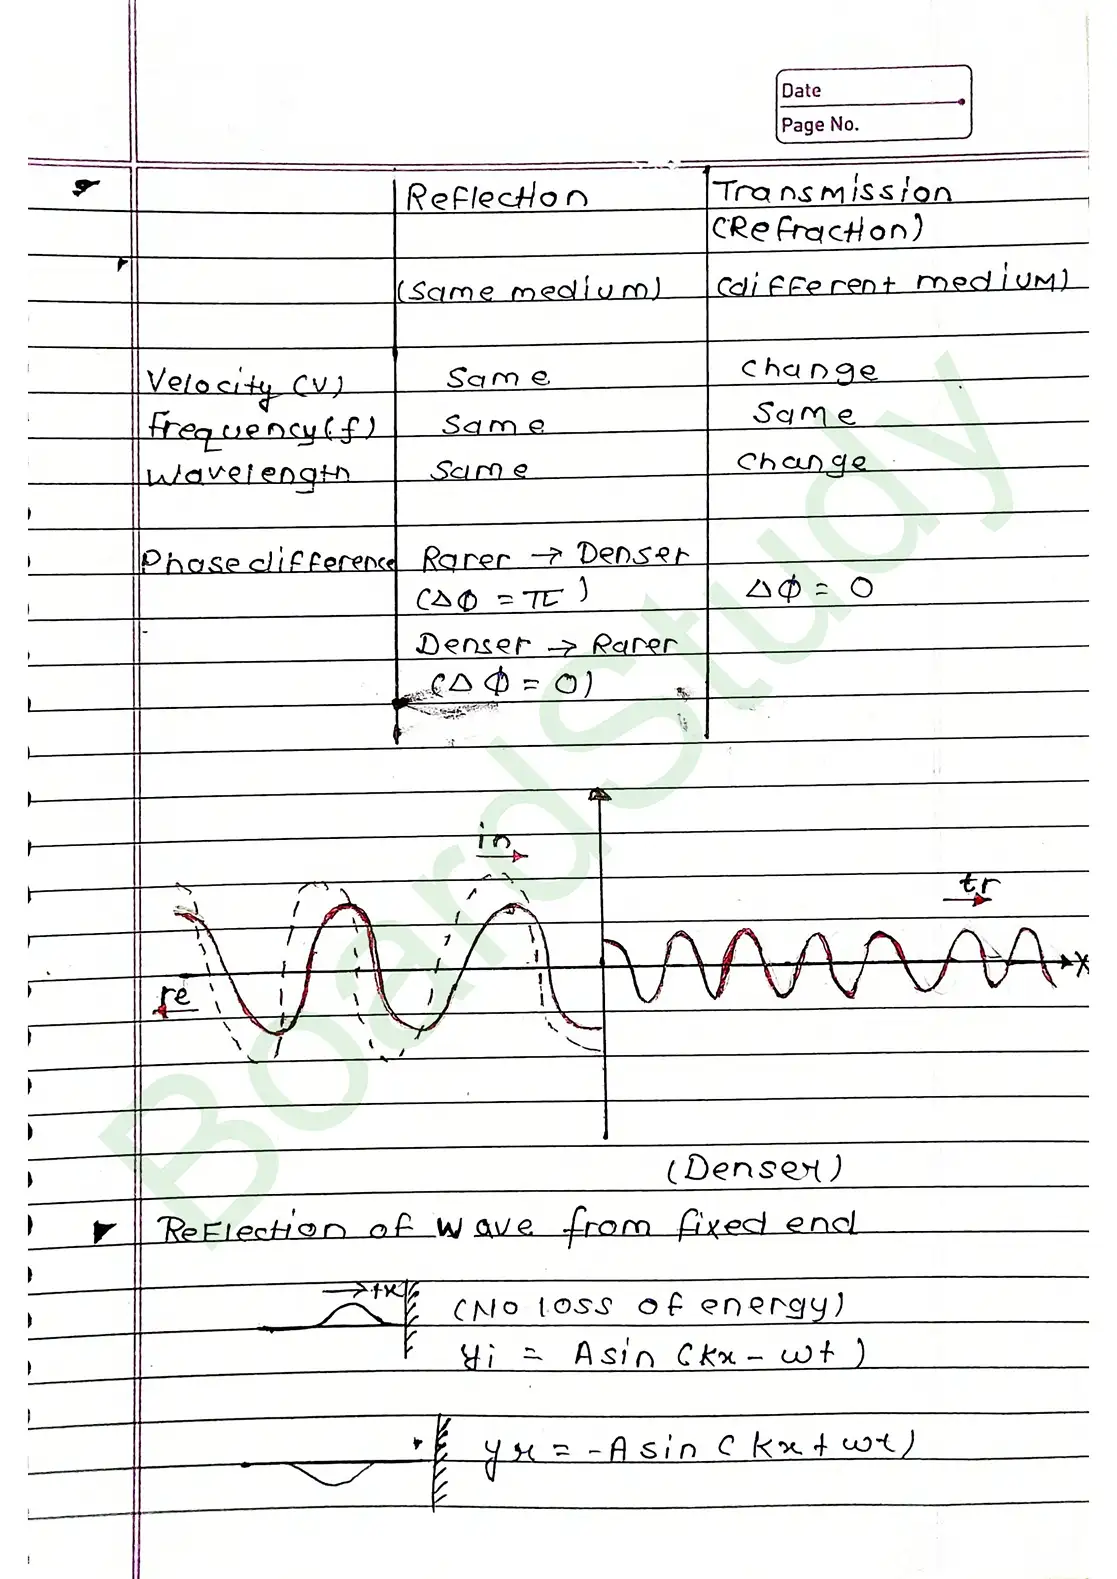 Date
Page No.
Reflection Transmission
(Refraction)
(Same medium) (different medium)
Velocity (v) Same change
frequency (f) Same Same
wavelength Same change
Phase difference Rarer → Denser
(Δϕ = π) Δϕ = 0
Denser → Rarer
(Δϕ = 0)
in
tr
re
x
(Denser)
Reflection of wave from fixed end
→ +x
(No loss of energy)
yi = A sin (kx - ωt)
yr = -A sin (kx + ωt)
BoardStudy